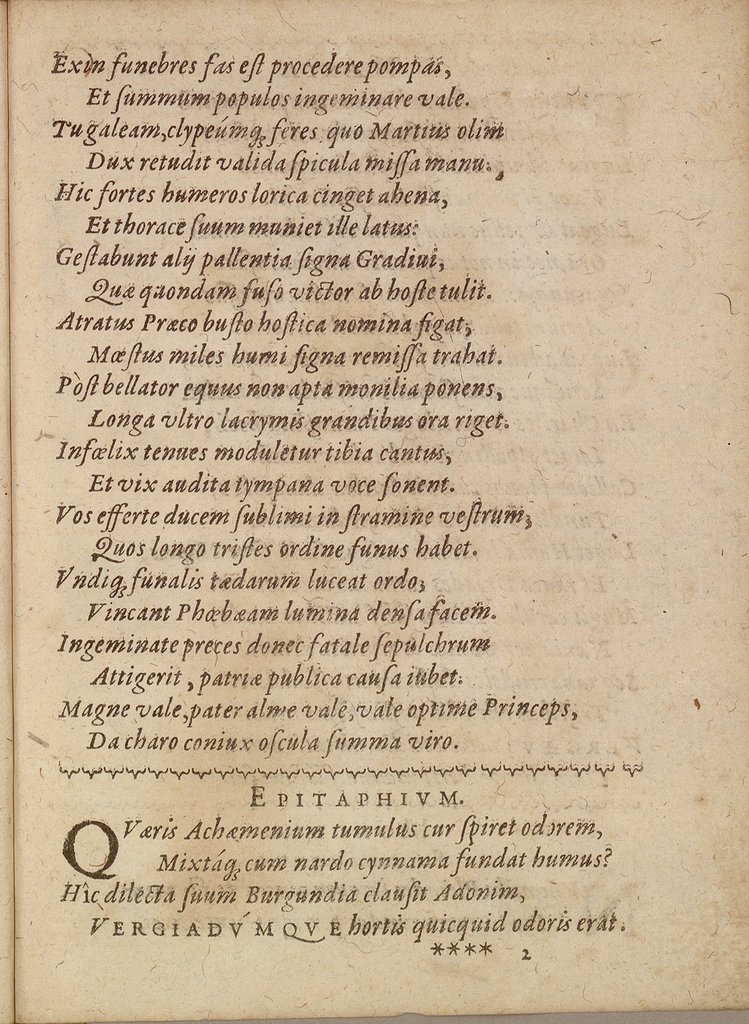 Exin funebres fas eſt procedere pompas,
Et ſummum populos ingeminare vale.
Tu galeam, clypeúmq; feres quo Martius olim
Dux retudit valida ſpicula miſſa manu.
Hic fortes humeros lorica cinget ahena,
Et thorace ſuum muniet ille latus:
Geſtabunt alij pallentia ſigna Gradiui,
Quæ quondam fuſo victor ab hoſte tulit.
Atratus Præco buſto hoſtica nomina figat,
Mœſtus miles humi ſigna remiſſa trahat.
Pòſt bellator equus non apta monilia ponens,
Longa vltro lacrymis grandibus ora riget.
Infœlix tenues moduletur tibia cantus,
Et vix audita tympana voce ſonent.
Vos efferte ducem ſublimi in ſtramine veſtrum,
Quos longo triſtes ordine funus habet.
Vndiq; funalis tædarum luceat ordo,
Vincant Phœbæam lumina denſa facem.
Ingeminate preces donec fatale ſepulchrum
Attigerit, patriæ publica cauſa iubet.
Magne vale, pater alme vale, vale optime Princeps,
Da charo coniux oſcula ſumma viro.
EPITAPHIVM.
QVæris Achæmenium tumulus cur ſpiret odorem,
Mixtáq; cum nardo cynnama fundat humus?
Hîc dilecta ſuum Burgundia clauſit Adonim,
VERGIADV́MQVE hortis quicquid odoris erat.
**** 2